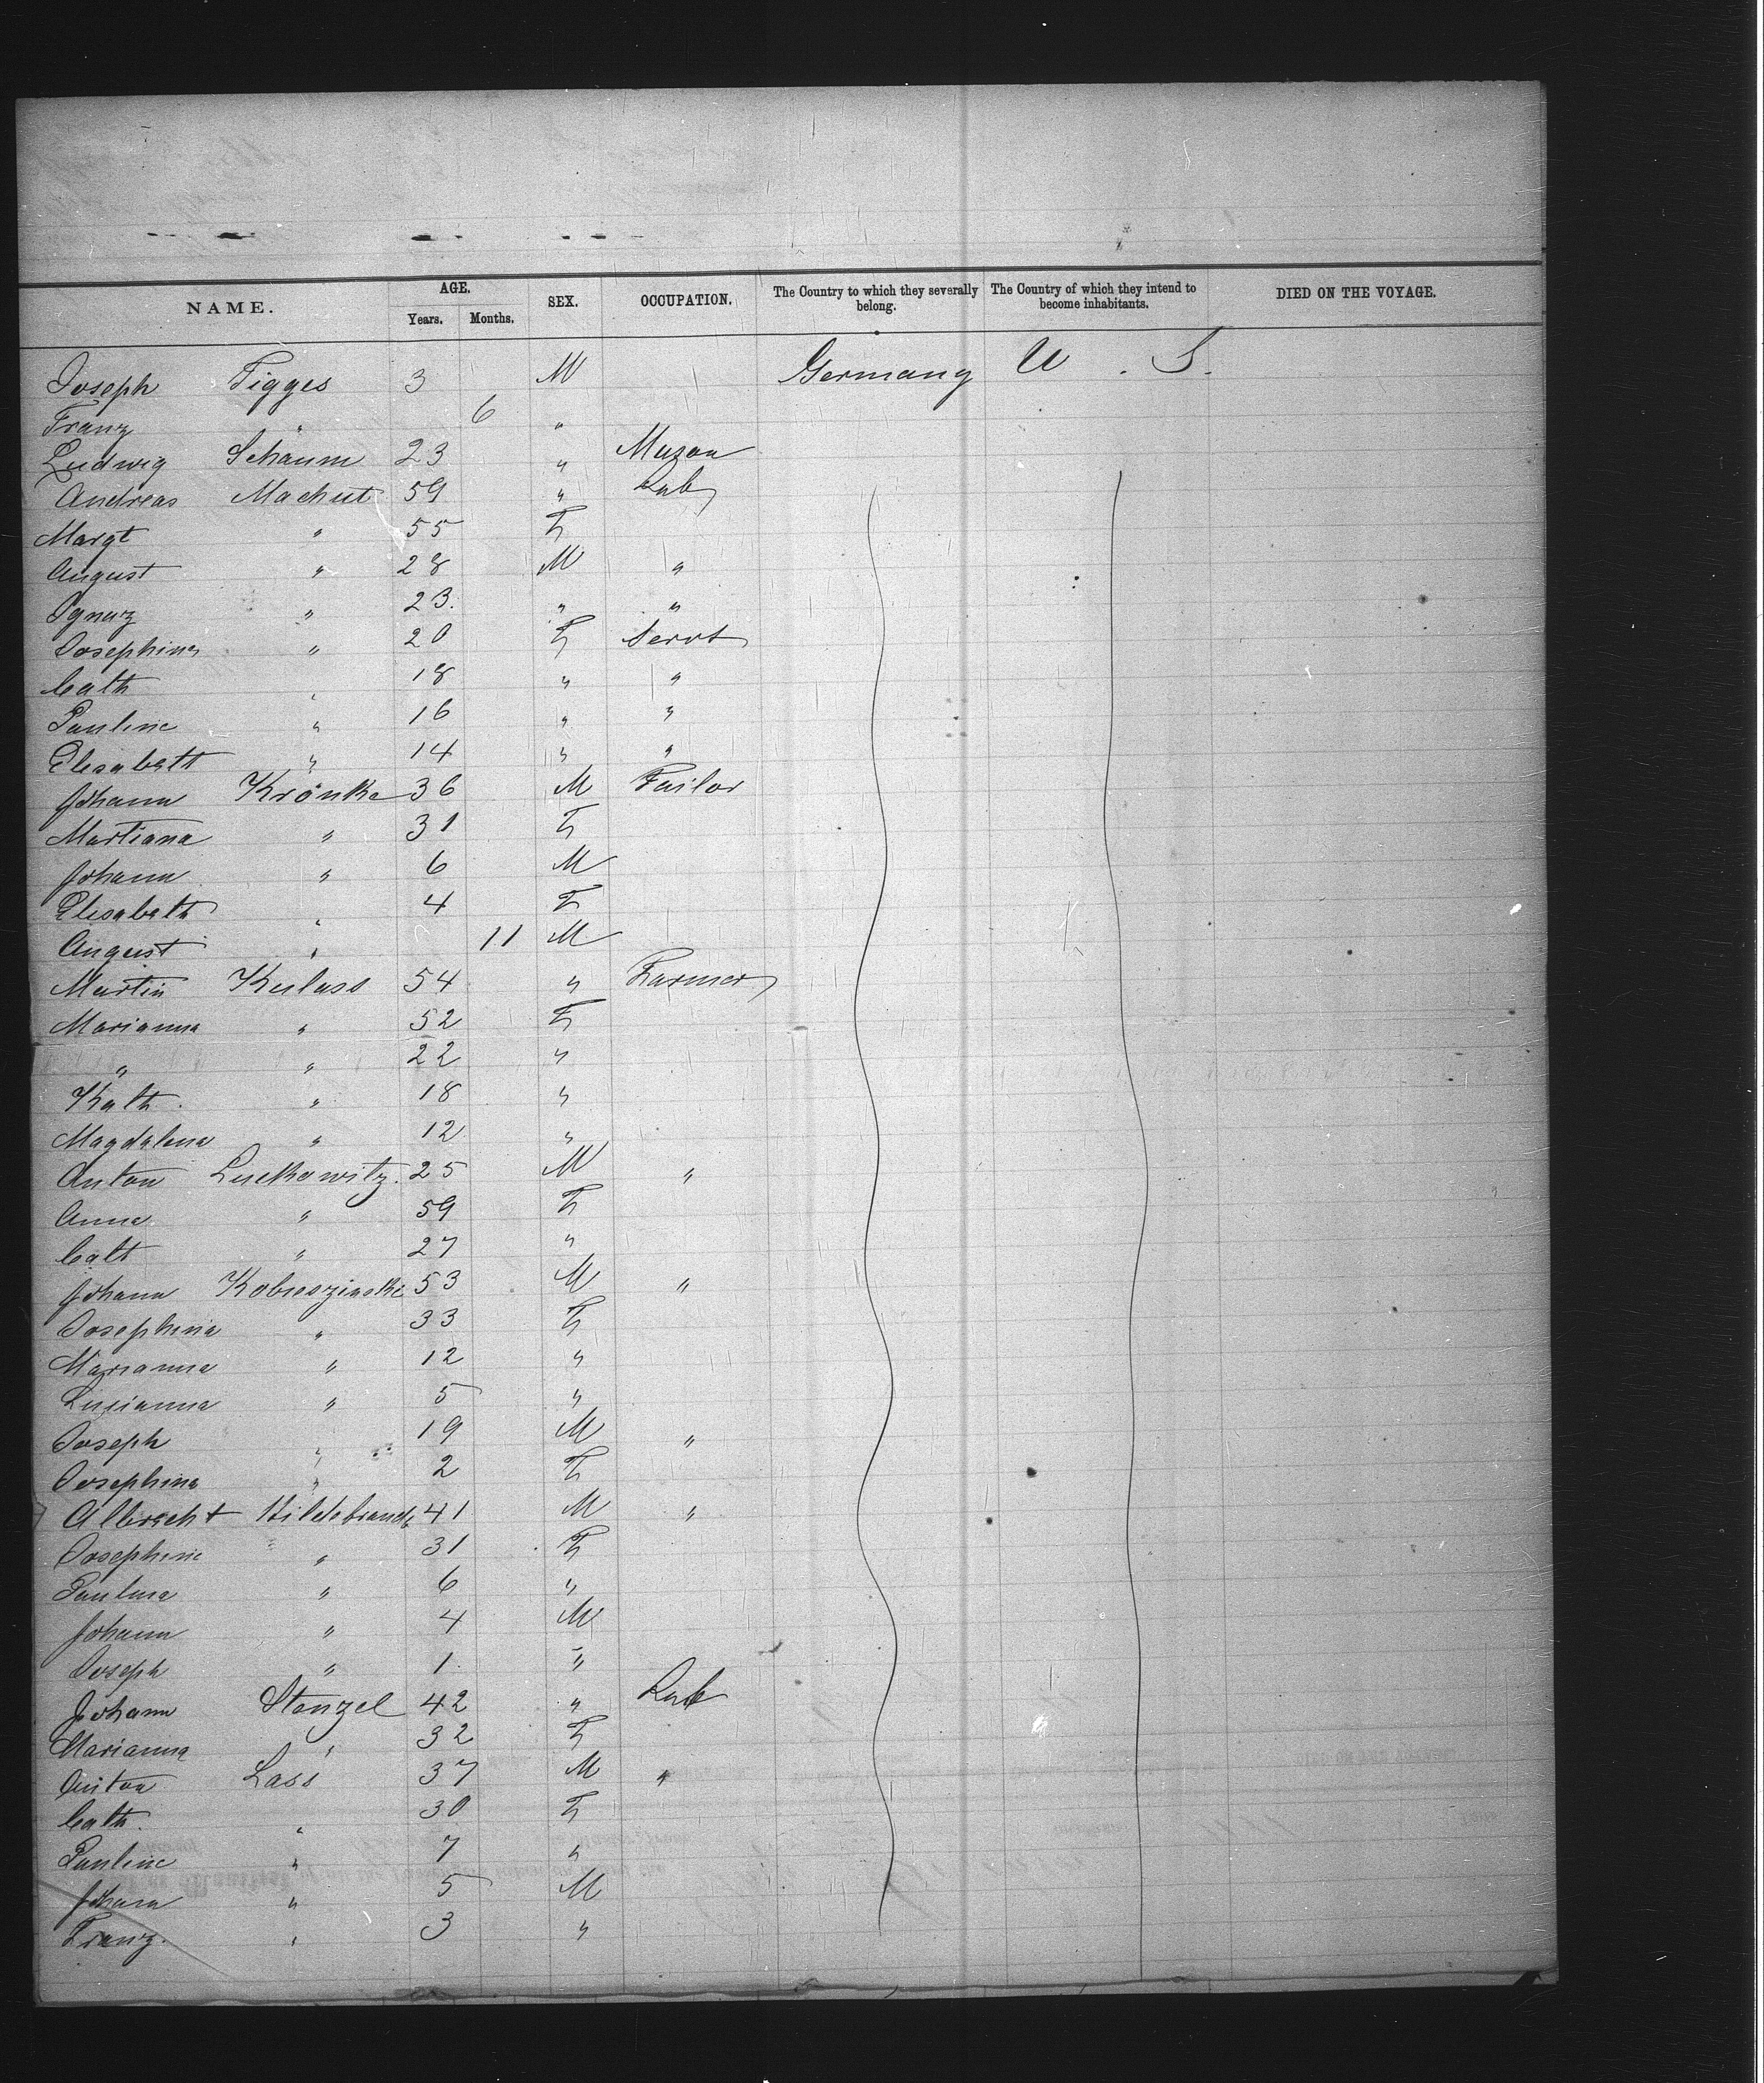 NAME. AGE. Years. Months. SEX. OCCUPATION. The Country to which they severally belong. The Country of which they intend to become inhabitants. DIED ON THE VOYAGE.
Joseph Tigges 3 M Germany U. S.
Franz " 6 "
Ludwig Schaum 23 " Mason
Andreas Machut 59 " Lab
Margt " 55 F
August " 28 M "
Ignaz " 23. " "
Josephine " 20 F Servt
Cath " 18 " "
Pauline " 16 " "
Elisabeth " 14 " "
Johann Krönke 36 M Tailor
Martiana " 31 F
Johann " 6 M
Elisabeth " 4 F
August " 11 M
Martin Kulass 54 " Farmer
Marianna " 52 F
" " 22 "
Kath. " 18 "
Magdalena " 12 "
Anton Luckowitz. 25 M "
Anna " 59 F
Cath " 27 "
Johann 53 M "
Josephina " 33 F
Marianna " 12 "
" 5 "
Joseph " 19 M "
Josephina " 2 F
Albrecht Hildebrandt 41 M "
Josephine " 31 F
Paulina " 6 "
Johann " 4 M
Joseph " 1 "
Johann Stenzel 42 " Lab
Marianna " 32 F
Anton Lass 37 M "
Cath. " 30 F
Pauline " 7 "
Johann " 5 M
Franz. " 3 "